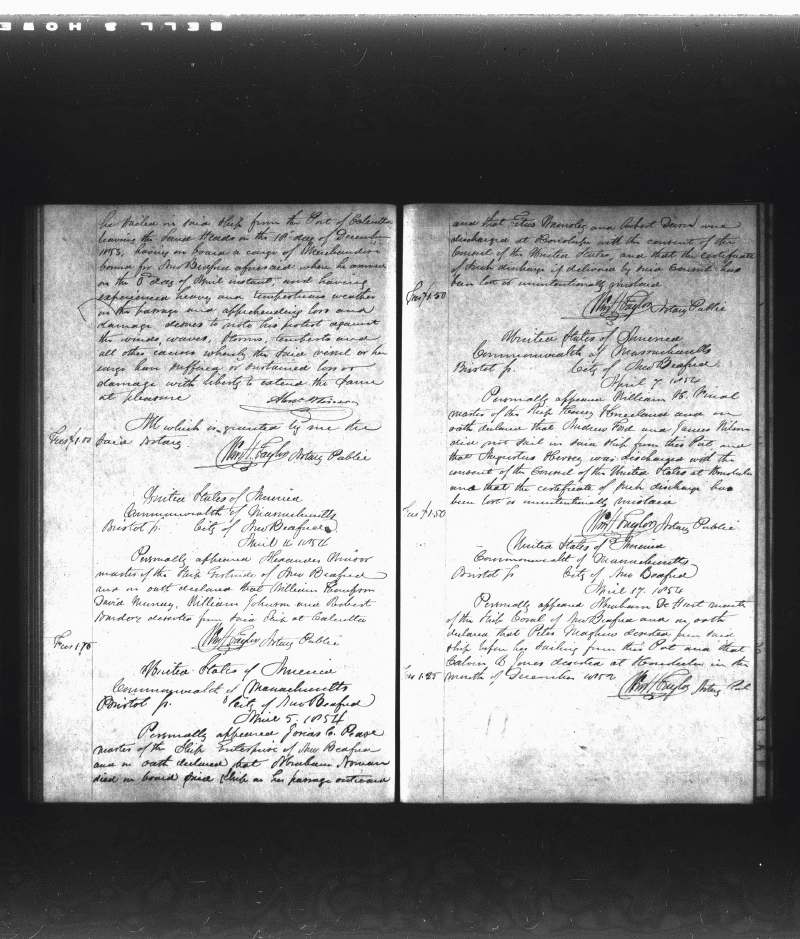 BELL & HOWE
he sailed in said Ship from the Port of Calcutta
leaving the Sand Heads on the 10th day of December
1853, having on board a cargo of Merchandise
bound for New Bedford aforesaid where he arrived
on the 5 day of April instant, and having
experienced heavy and tempestuous weather
on the passage and apprehending loss and
damage desires to note his protest against
the winds, waves, storms, tempests and
all other causes whereby the said vessel or her
cargo have suffered or sustained loss or
damage with liberty to extend the same
at pleasure
All which is granted by me the
Fees $1.00 said Notary
Wm H. Taylor Notary Public
United States of America
Commonwealth of Massachusetts
Bristol ss. City of New Bedford
April 1854
Personally appeared Alexander
master of the Ship of New Bedford
and on oath declared that William Thompson
David Murray, William Johnson and Robert
deserted from said Ship at Calcutta
Fees 1.75 Wm H. Taylor Notary Public
United States of America
Commonwealth of Massachusetts
Bristol ss. City of New Bedford
April 5. 1854
Personally appeared Josias C. Pease
master of the Ship Enterprise of New Bedford
and on oath declared that Abraham Norman
died on board said Ship on her passage outward
and that Titus and Robert were
discharged at Honolulu with the consent of the
Consul of the United States, and that the certificate
of such discharge if delivered by said Consul has
been lost or unintentionally mislaid
Fees $1.50 Wm H. Taylor Notary Public
United States of America
Commonwealth of Massachusetts
Bristol ss. City of New Bedford
April 7. 1854
Personally appeared William H. Vinal
master of the Ship Henry Kneeland and on
oath declared that Andrew Ford and James Wilson
did not sail in said Ship from this Port and
that Augustus Hervey was discharged with the
consent of the Consul of the United States at Honolulu
and that the certificate of such discharge has
been lost or unintentionally mislaid
Fees $1.50 Wm H. Taylor Notary Public
United States of America
Commonwealth of Massachusetts
Bristol ss City of New Bedford
April 17. 1854
Personally appeared Abraham De Hart master
of the Ship Coral of New Bedford and on oath
declared that Peter Mayhew deserted from said
Ship before her sailing from this Port and that
Calvin D. Jones deserted at Honolulu in the
Fees 1.25 month of December 1852
Wm H. Taylor Notary Pub